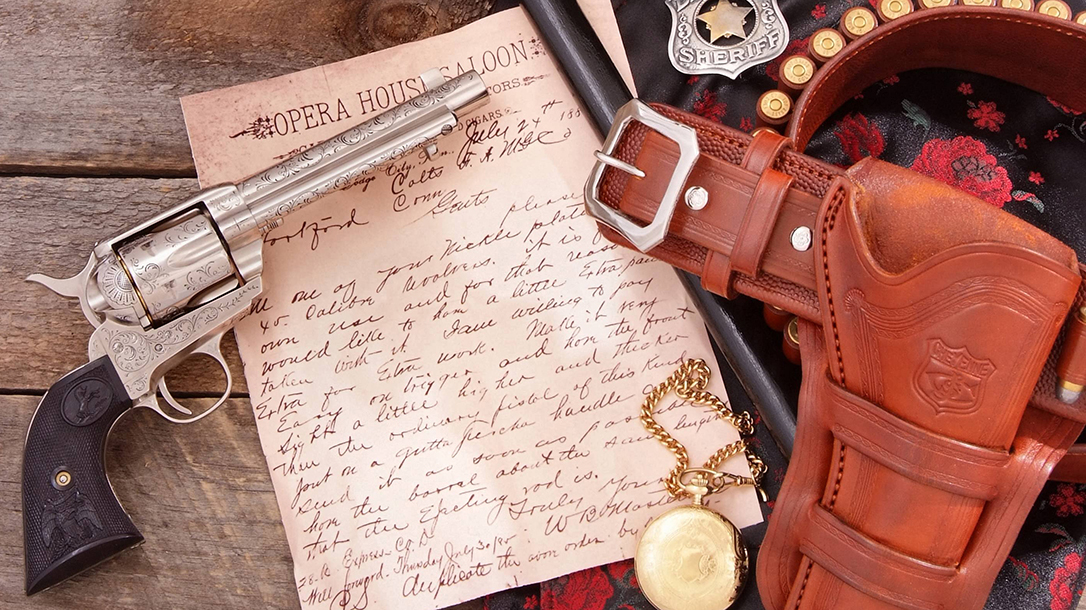 SHERIFF
OPERA HOUSE SALOON
TORS.
CIGARS.
July 24th 188
Dodge City,
Colts
Conn
Gents please
one of your Nickle plated
45. Calibre Revolvers. it is for
own use and for that reason
would like to have a little Extra pains
taken with it. I am willing to pay
Extra for Extra work. Make it very
Easy on trigger and have the front
Sight a little higher and thicker
than the ordinary pistol of this Kind
put on a gutta percha handle
send it as soon as
have the barrel about the same
that the Ejecting rod is.
Truly
W B
Express C.O.D
Will forward Thursday July 30/85
PS duplicate the above order by